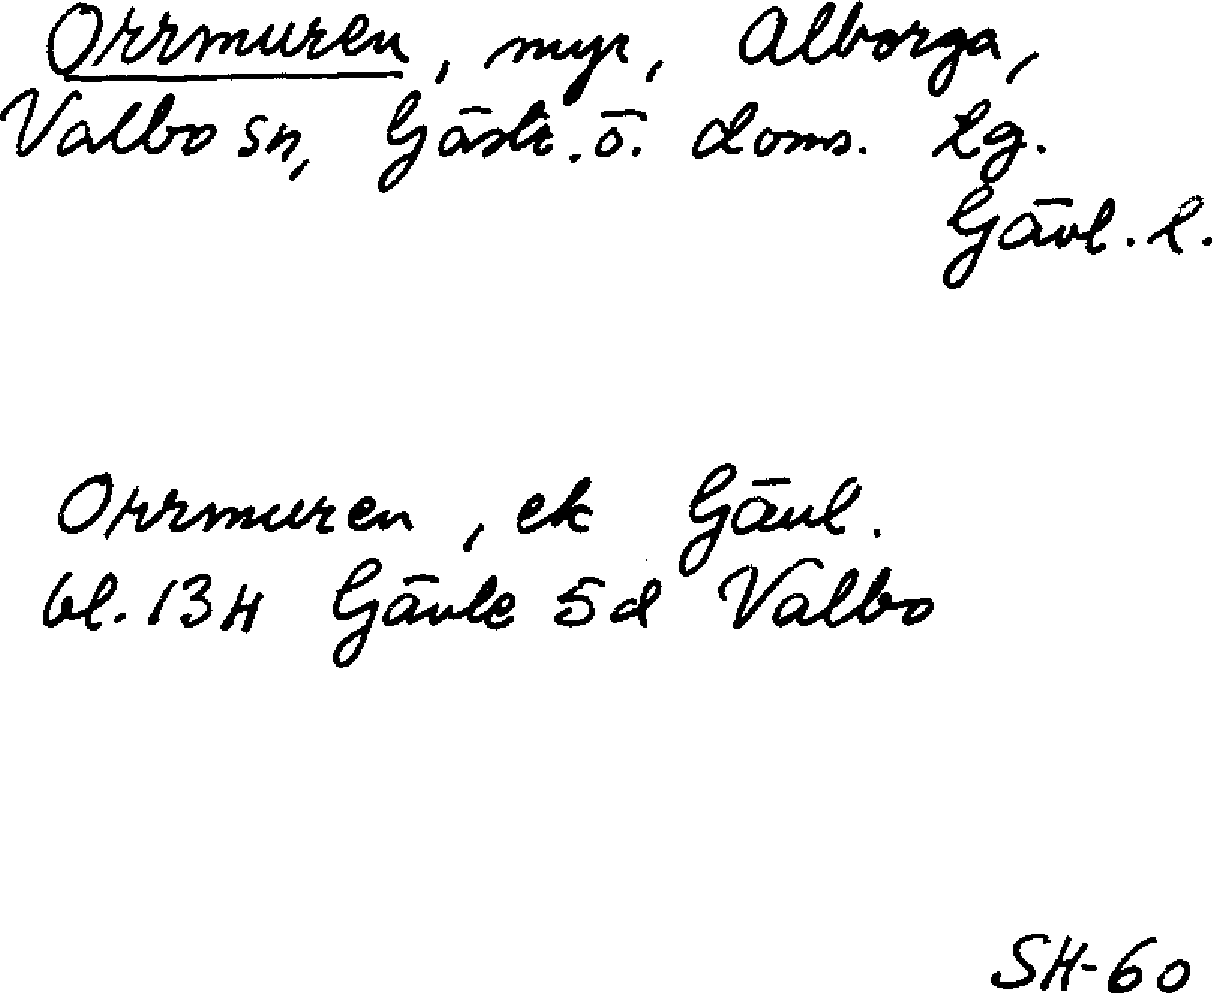 Orrmuren, myr, Alborga,
Valbo sn, Gästr. ö. doms. lg.
Gävl. l.
Orrmuren, ek Gävl.
bl. 13H Gävle 5d Valbo
SH-60